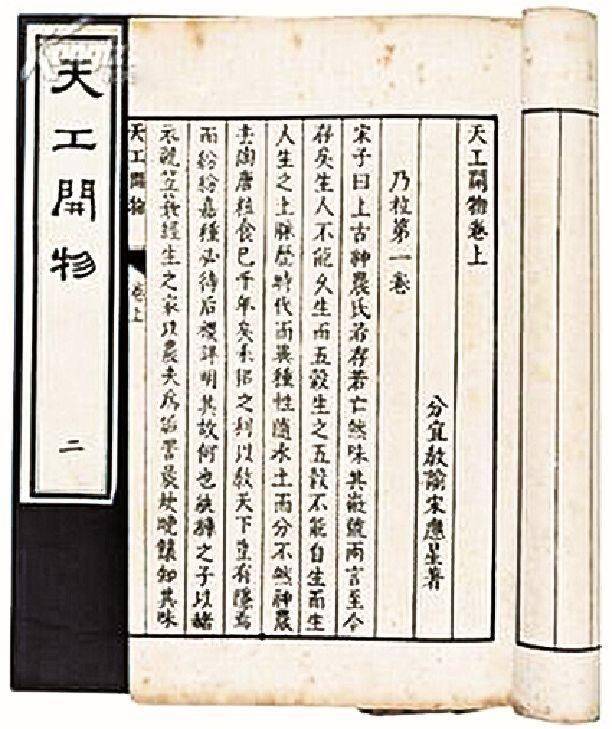 天工開物
二
天工開物卷上
分宜教諭宋應星著
乃粒第一卷
宋子曰上古神農氏若存若亡然味其徽號兩言至今
存矣生人不能久生而五穀生之五穀不能自生而生
人生之土脉歷時代而異種性隨水土而分不然神農
去陶唐粒食已千年矣耒耜之利以教天下豈有隱焉
而紛紛嘉種必待后稷詳明其故何也紈褲之子以赭
衣視笠蓑經生之家以農夫爲詬詈晨炊晚饟知其味
天工開物 卷上